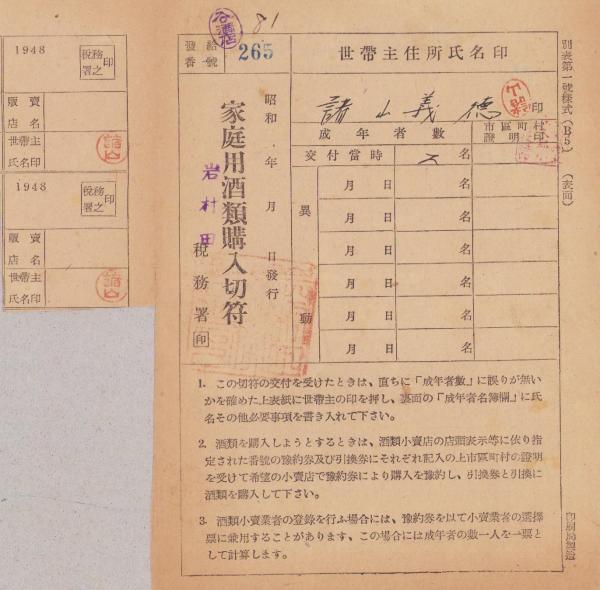 1948
税務署之印
販賣店名
世帶主氏名印
1948
税務署之印
販賣店名
世帶主氏名印
81
發給番號
265
家庭用酒類購入切符
昭和 年 月 日發行
岩村田
税務署 印
世帶主住所氏名印
諸山義德 印
成年者數
市區町村證明印
交付當時 名
異動
月 日 名
月 日 名
月 日 名
月 日 名
月 日 名
月 日 名
1. この切符の交付を受けたときは、直ちに「成年者數」に誤りが無い
かを確めた上表紙に世帶主の印を押し、裏面の「成年者名簿欄」に氏
名その他必要事項を書き入れて下さい。
2. 酒類を購入しようとするときは、酒類小賣店の店頭表示等に依り指
定された番號の豫約券及び引換券にそれぞれ記入の上市區町村の證明
を受けて希望の小賣店で豫約券により購入を豫約し、引換券と引換に
酒類を購入して下さい。
3. 酒類小賣業者の登錄を行ふ場合には、豫約券を以て小賣業者の選擇
票に兼用することがあります、この場合には成年者の數一人を一票と
して計算します。
別表第一號樣式(B5)(表面)